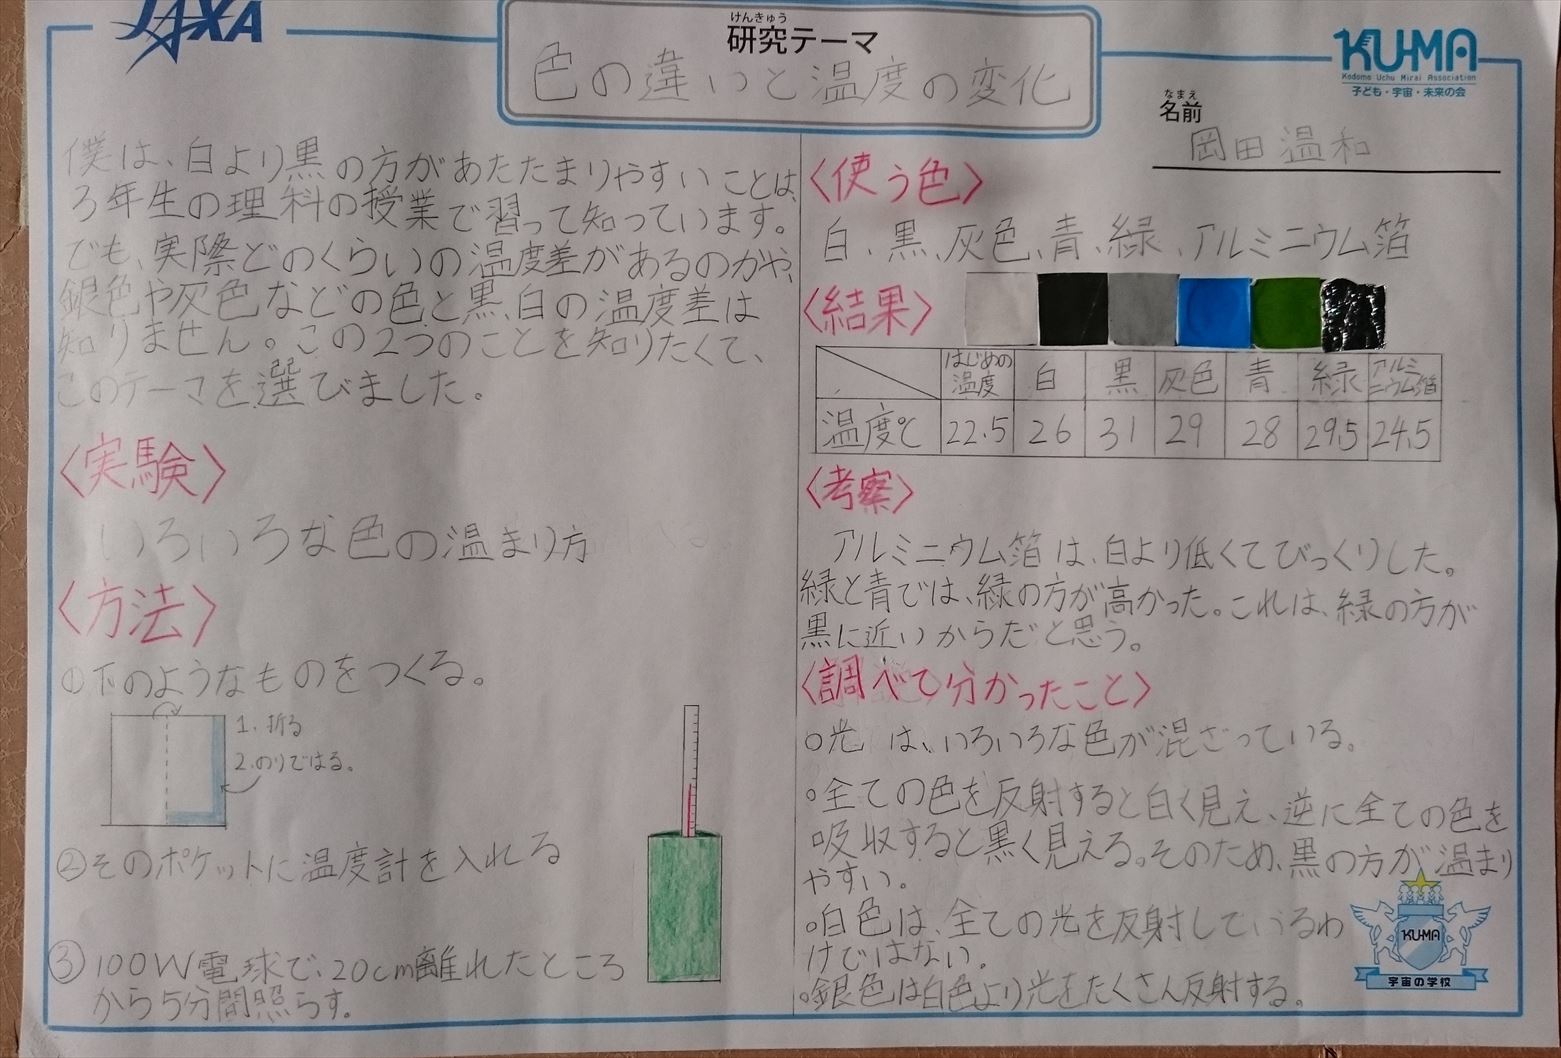 JAXA
けんきゅう
研究テーマ
色の違いと温度の変化
KU-MA
Kodomo Uchu Mirai Association
子ども・宇宙・未来の会
なまえ
名前
岡田温和
僕は、白より黒の方があたたまりやすいことは、
3年生の理科の授業で習って知っています。
でも、実際どのくらいの温度差があるのかや、
銀色や灰色などの色と黒、白の温度差は
知りません。この2つのことを知りたくて、
このテーマを選びました。
〈実験〉
いろいろな色の温まり方
〈方法〉
①下のようなものをつくる。
1.折る
2.のりではる。
②そのポケットに温度計を入れる
③100W電球で、20cm離れたところ
から5分間照らす。
〈使う色〉
白、黒、灰色、青、緑、アルミニウム箔
〈結果〉
はじめの温度 白 黒 灰色 青 緑 アルミニウム箔
温度℃ 22.5 26 31 29 28 29.5 24.5
〈考察〉
アルミニウム箔は、白より低くてびっくりした。
緑と青では、緑の方が高かった。これは、緑の方が
黒に近いからだと思う。
〈調べて分かったこと〉
○光は、いろいろな色が混ざっている。
○全ての色を反射すると白く見え、逆に全ての色を
吸収すると黒く見える。そのため、黒の方が温まり
やすい。
○白色は、全ての光を反射しているわ
けではない。
○銀色は白色より光をたくさん反射する。
KU-MA
宇宙の学校